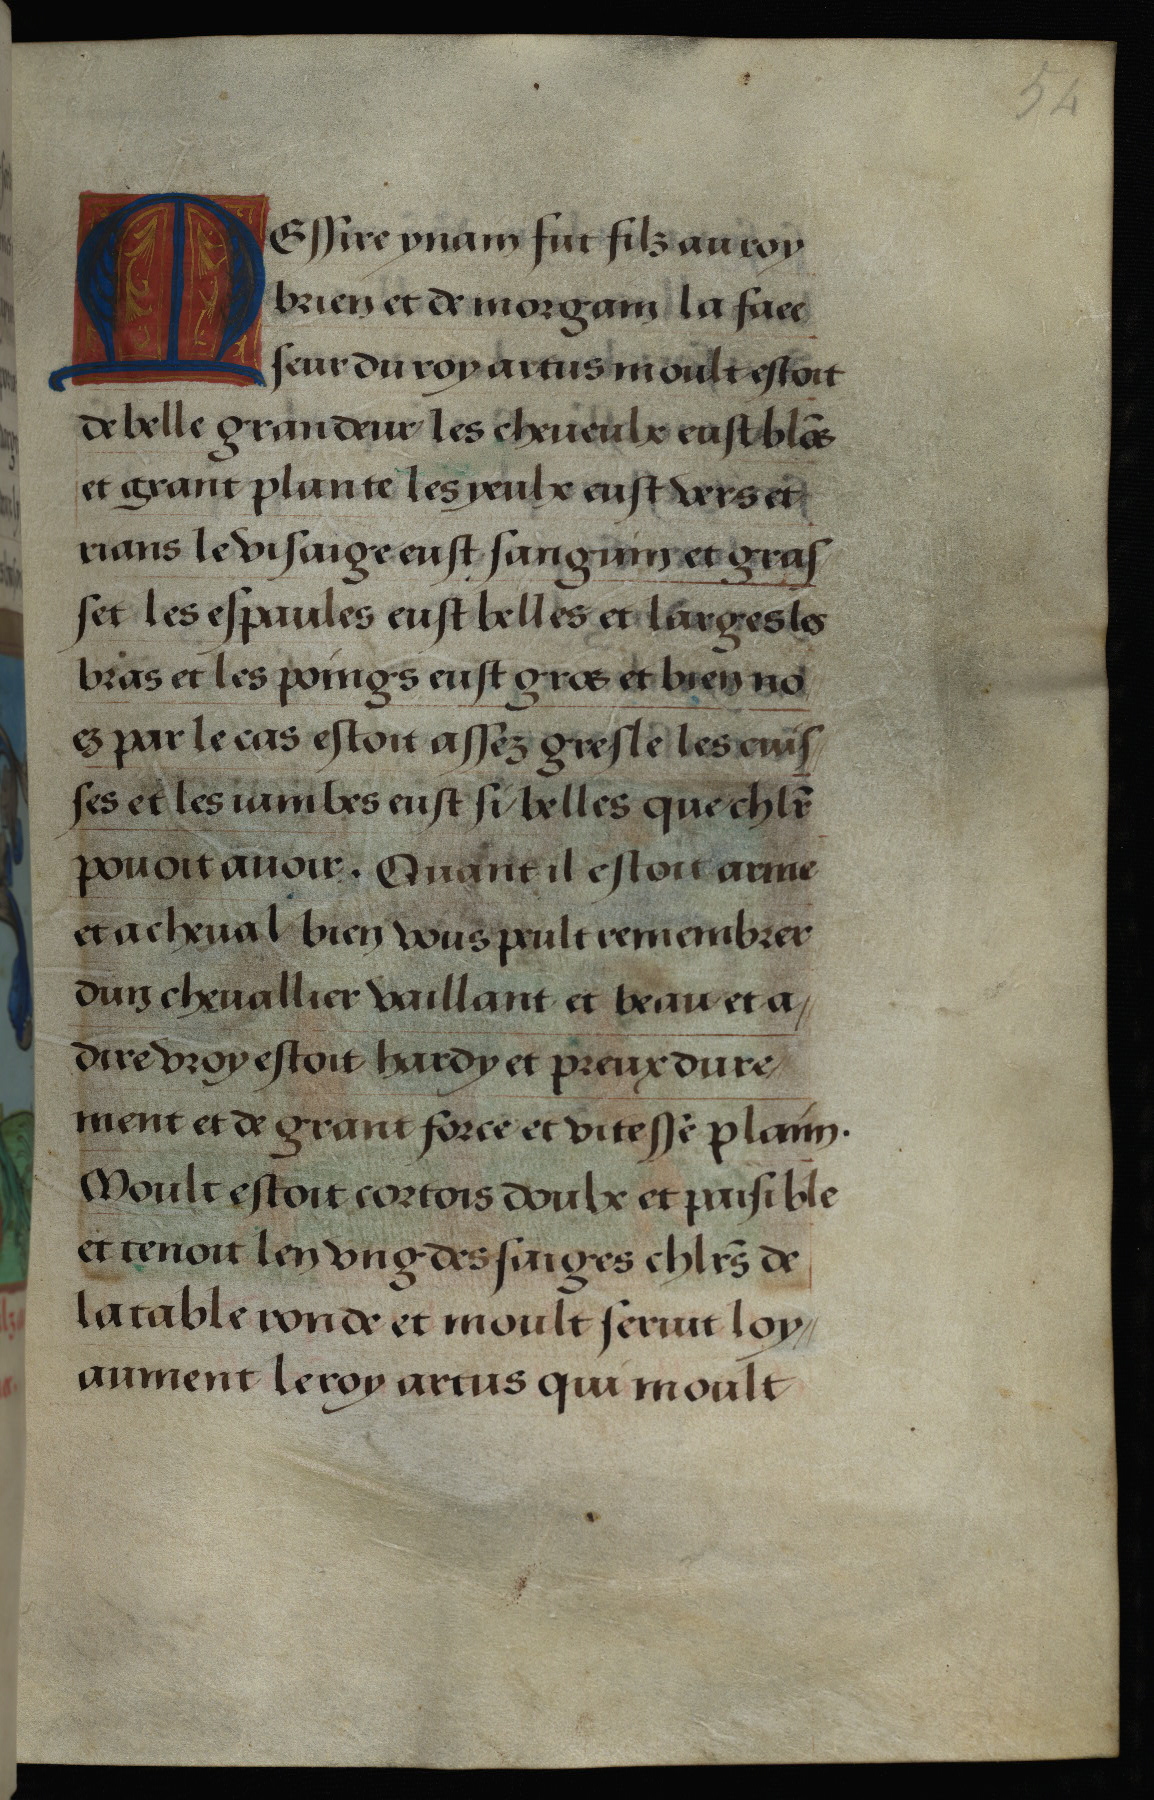 54
MEssire yuain fut filz au roy
brien et de morgain la faee
seur du roy artus moult estoit
de belle grandeur les cheueulx eust blōs
et grant plante les yeulx eust vers et
rians le visaige eust sanguin et gras
set les espaules eust belles et larges les
bras et les poings eust gros et bien no
ez par le cas estoit assez gresle les cuis/
ses et les iambes eust si belles que chlr̄
pouoit auoir. Quant il estoit arme
et a cheual bien vous peult remembrer
dun cheuallier vaillant et beau et a//
dire vroy estoit hardy et preux dure/
ment et de grant force et vitesse plain.
Moult estoit cortois doulx et paisible
et tenoit len vng des saiges chlr̄s de
la table ronde et moult seruit loy//
aument le roy artus qui moult